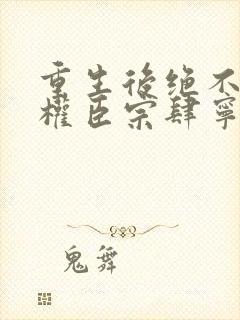 重生後绝不
權臣宗肆寧
鬼舞